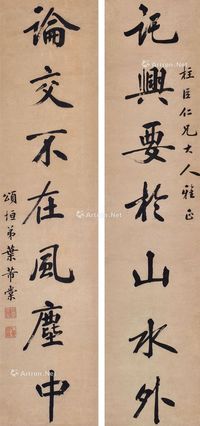 託興要於山水外
桂臣仁兄大人雅正
論交不在風塵中
頌垣弟葉芾棠